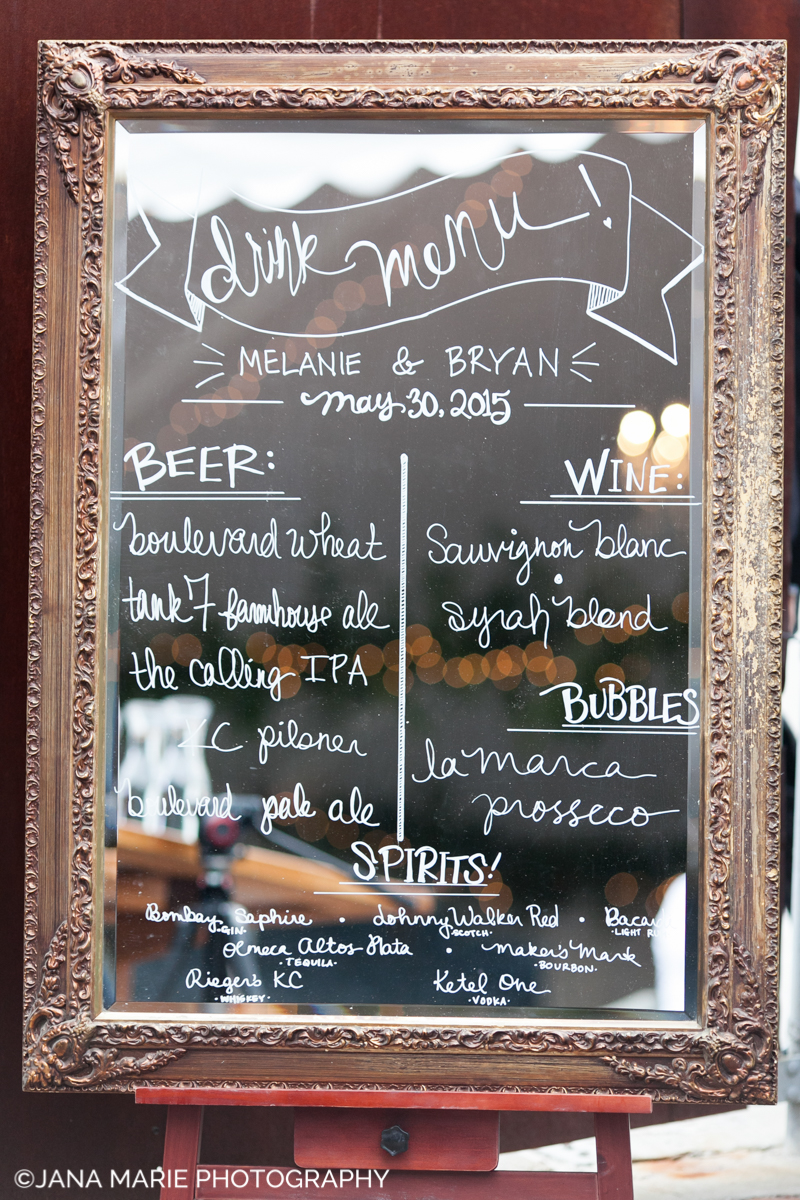 drink menu!
MELANIE & BRYAN
may 30, 2015
BEER:
boulevard wheat
tank 7 farmhouse ale
the calling IPA
KC pilsner
boulevard pale ale
WINE:
Sauvignon blanc
•
syrah blend
BUBBLES
la marca
prosseco
SPIRITS!
Bombay Saphire • Johnny Walker Red •
·GIN· ·SCOTCH· ·LIGHT
Olmeca Altos Plata • Maker's Mark
·TEQUILA· ·BOURBON·
Rieger's KC Ketel One
·WHISKEY· ·VODKA·
©JANA MARIE PHOTOGRAPHY